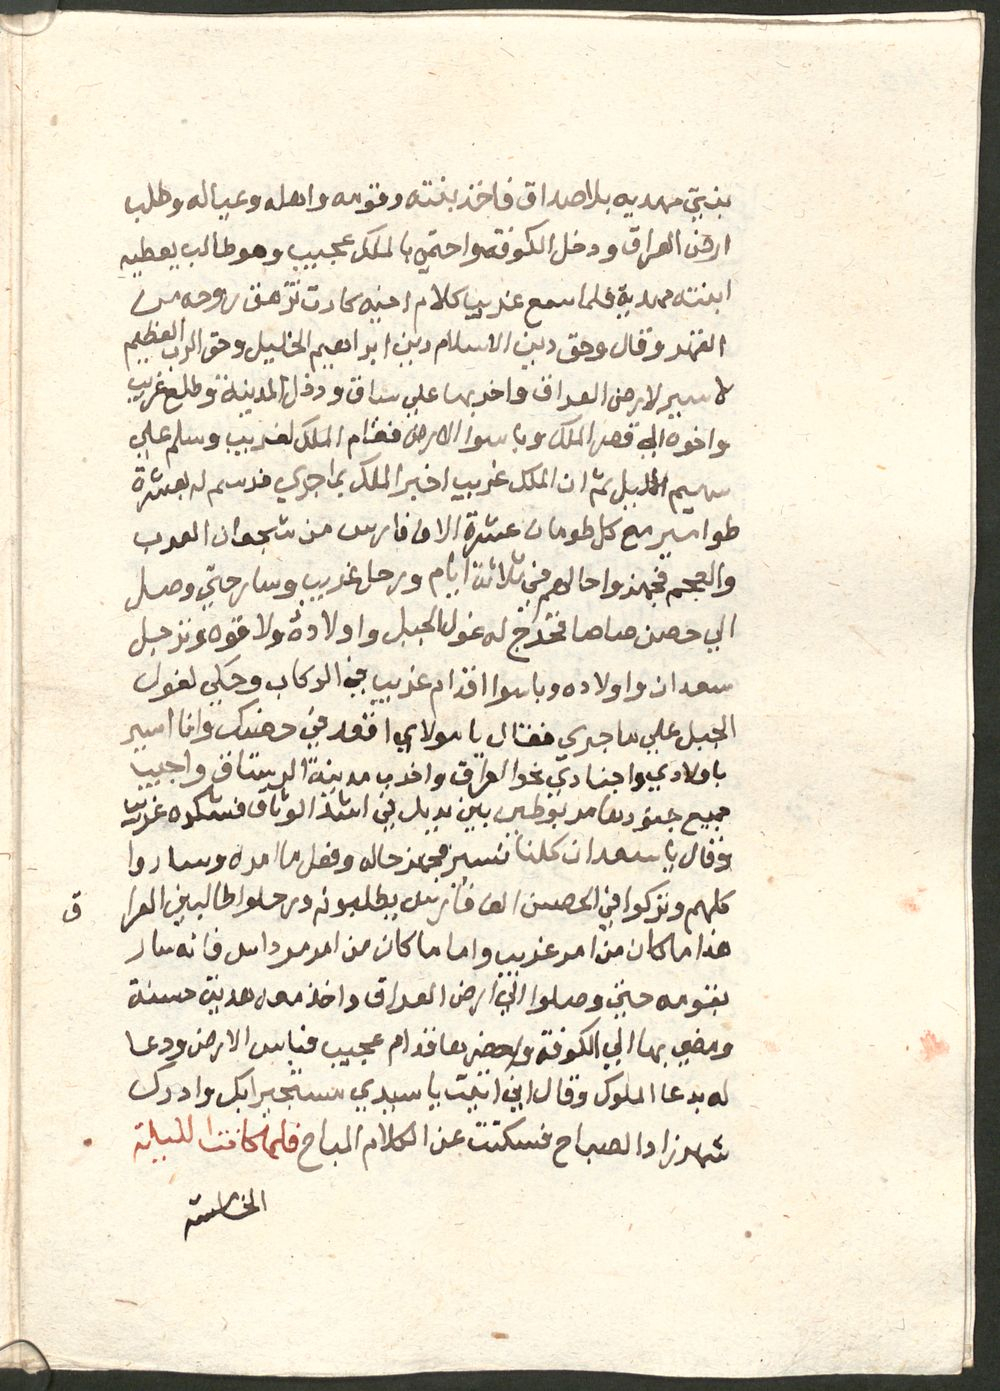 بنتي مهديه بلا صداق فاخذ بنته وقومه واهله وعياله وطلب
ارض العراق ودخل الكوفة واحتمي بالملك عجيب وهو طالب يعطيه
ابنته مهدية فلما سمع غريب كلام اخيه كادت تزهق روحه من
القهر وقال وحق دين الاسلام دين ابراهيم الخليل وحق الرب العظيم
لاسير لارض العراق واخربها علي ساق ودخل المدينة وطلع غريب
واخوه الي قصر الملك وباسوا الارض فقام الملك لغريب وسلم علي
سهيم الليل ثم ان الملك غريب اخبر الملك بما جري فرسم له بعشرة
طوامير مع كل طومان عشرة الاف فارس من شجعان العرب
والعجم فجهزوا حالهم في ثلاثة ايام ورحل غريب وسار حتي وصل
الي حصن صاصا فخرج له غول الجبل واولاده ولاقوه ونزجل
سعدان واولاده وباسوا اقدام غريب في الركاب وحكي لغول
الجبل علي ما جري فقال يا مولاي اقعد في حصنك وانا اسير
باولادي واجنادي نحو العراق واخرب مدينة الرستاق واجيب
جميع جنودها مربوطين بين يديك في اشد الوثاق فشكره غريب
وقال يا سعدان كلنا نسير فجهز حاله وفعل ما امره وساروا
كلهم وتركوا في الحصن الف فارس يطلبونه ورحلوا طالبين العرا ق
هذا ما كان من امر غريب واما ما كان من امر مرداس فانه سار
بقومه حتي وصلوا الي ارض العراق واخذ معه هدية حسنة
ومضي بها الي الكوفة واحضرها قدام عجيب فباس الارض ودعا
له بدعا الملوك وقال اني اتيت يا سيدي مستجيرا بك وادرك
شهرزاد الصباح فسكتت عن الكلام المباح فلما كانت الليلة
الخامسة